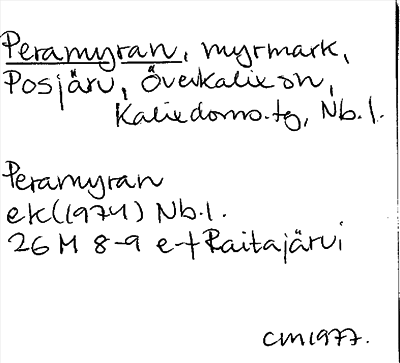 Peramyran, myrmark,
Posjärv, Överkalix sn,
Kalix doms.tg, Nb.l.
Peramyran
ek(1974) Nb.l.
26 M 8-9 e-f Raitajärvi
CM1977.